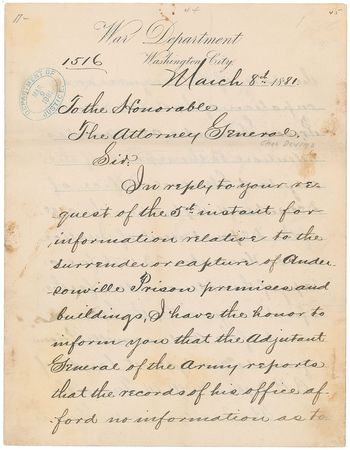 11-
44
45
War Department
Washington City,
1516
March 8th, 1881.
DEPARTMENT OF JUSTICE
MAR
1881
To the Honorable
The Attorney General.
Sir:
In reply to your re-
quest of the 5th instant for
information relative to the
surrender or capture of Ander
sonville Prison premises and
buildings, I have the honor to
inform you that the Adjutant
General of the Army reports
that the records of his office af-
ford no information as to